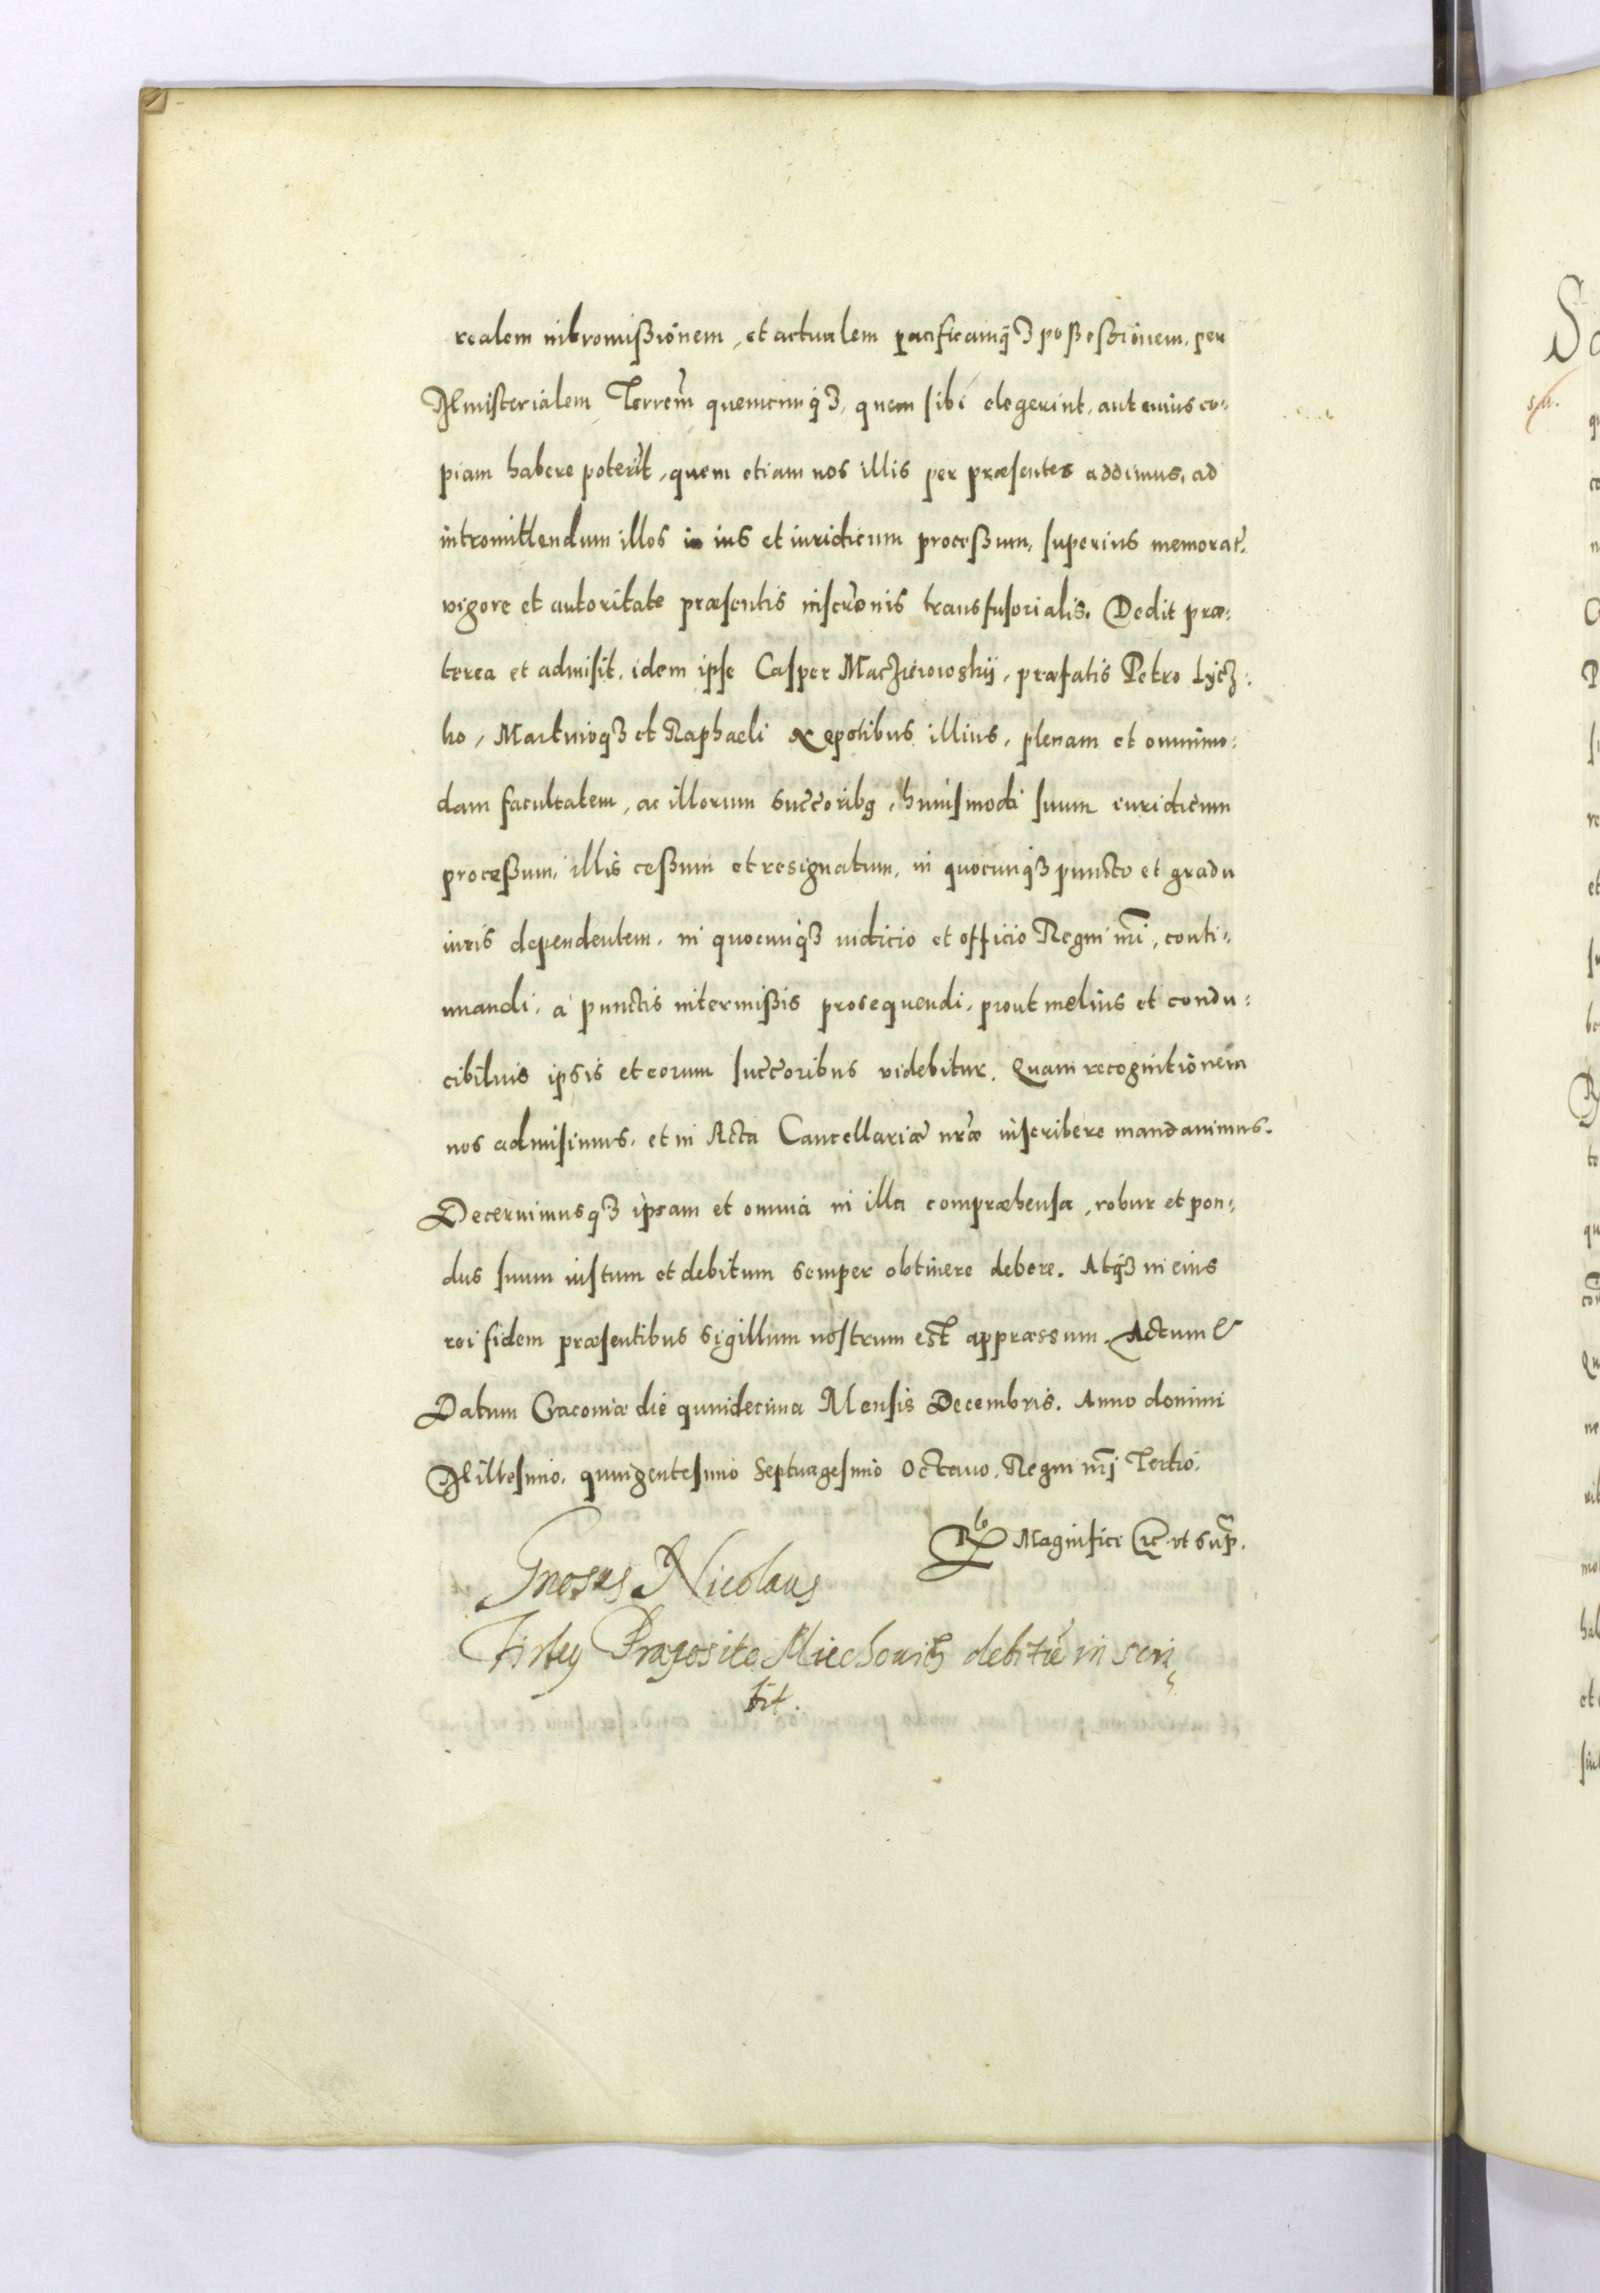 realem intromißionem, et actualem pacificamq3 poßeßionem, per
Ministerialem Terrem̃ quemcunq3, quem sibi elegerint, aut cuius co-
piam habere poterit, quem etiam nos illis per præsentes addimus, ad
intromittendum illos in ius et iuridicum proceßum, superius memorat̃.
vigore et autoritate præsentis inscrõnis transfusorialis. Dedit præ-
terea et admisit, idem ipse Casper Maczieiowskij, præfatis Petro Lycz-
ko, Martinoq3 et Raphaeli Nepotibus illius, plenam et omnimo-
dam facultatem, ac illorum succ̃oribg, huiusmodi suum iuridicum
proceßum, illis ceßum et resignatum, in quocunq3 puncto et gradu
iuris dependentem, in quocunq3 iudicio et officio Regni nr̃i, conti-
nuandi, a punctis intermißis prosequendi, prout melius et condu-
cibilius ipsis et eorum succ̃oribus videbitur. Quam recognitionem
nos admisimus, et in Acta Cancellariæ nr̃æ inscribere mandauimus.
Decernimusq3 ipsam et omnia in illa compræhensa, robur et pon-
dus suum iustum et debitum semper obtinere debere. Atq3 in eius
rei fidem præsentibus sigillum nostrum est appræssum. Actum &
Datum Cracoviæ die quindecima Mensis Decembris. Anno domini
Millesimo, quingentesimo Septuagesimo Octauo, Regni nr̃j Tertio.
Rlo Magnifici &c ut sup̃.
Gnosus Nicolaus
Firley Præposito Miechouien debitũ inscri-
bit.
Sa